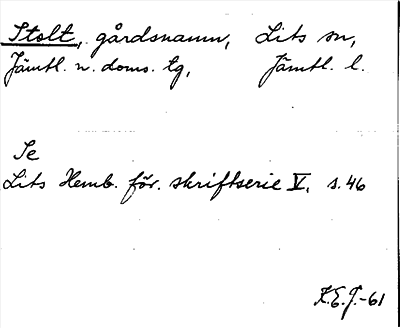 Stolt, gårdsnamn, Lits sn,
Jämtl. n. doms. tg, Jämtl. l.
Se
Lits Hemb. för. skriftserie V, s. 46
K.E.J.-61